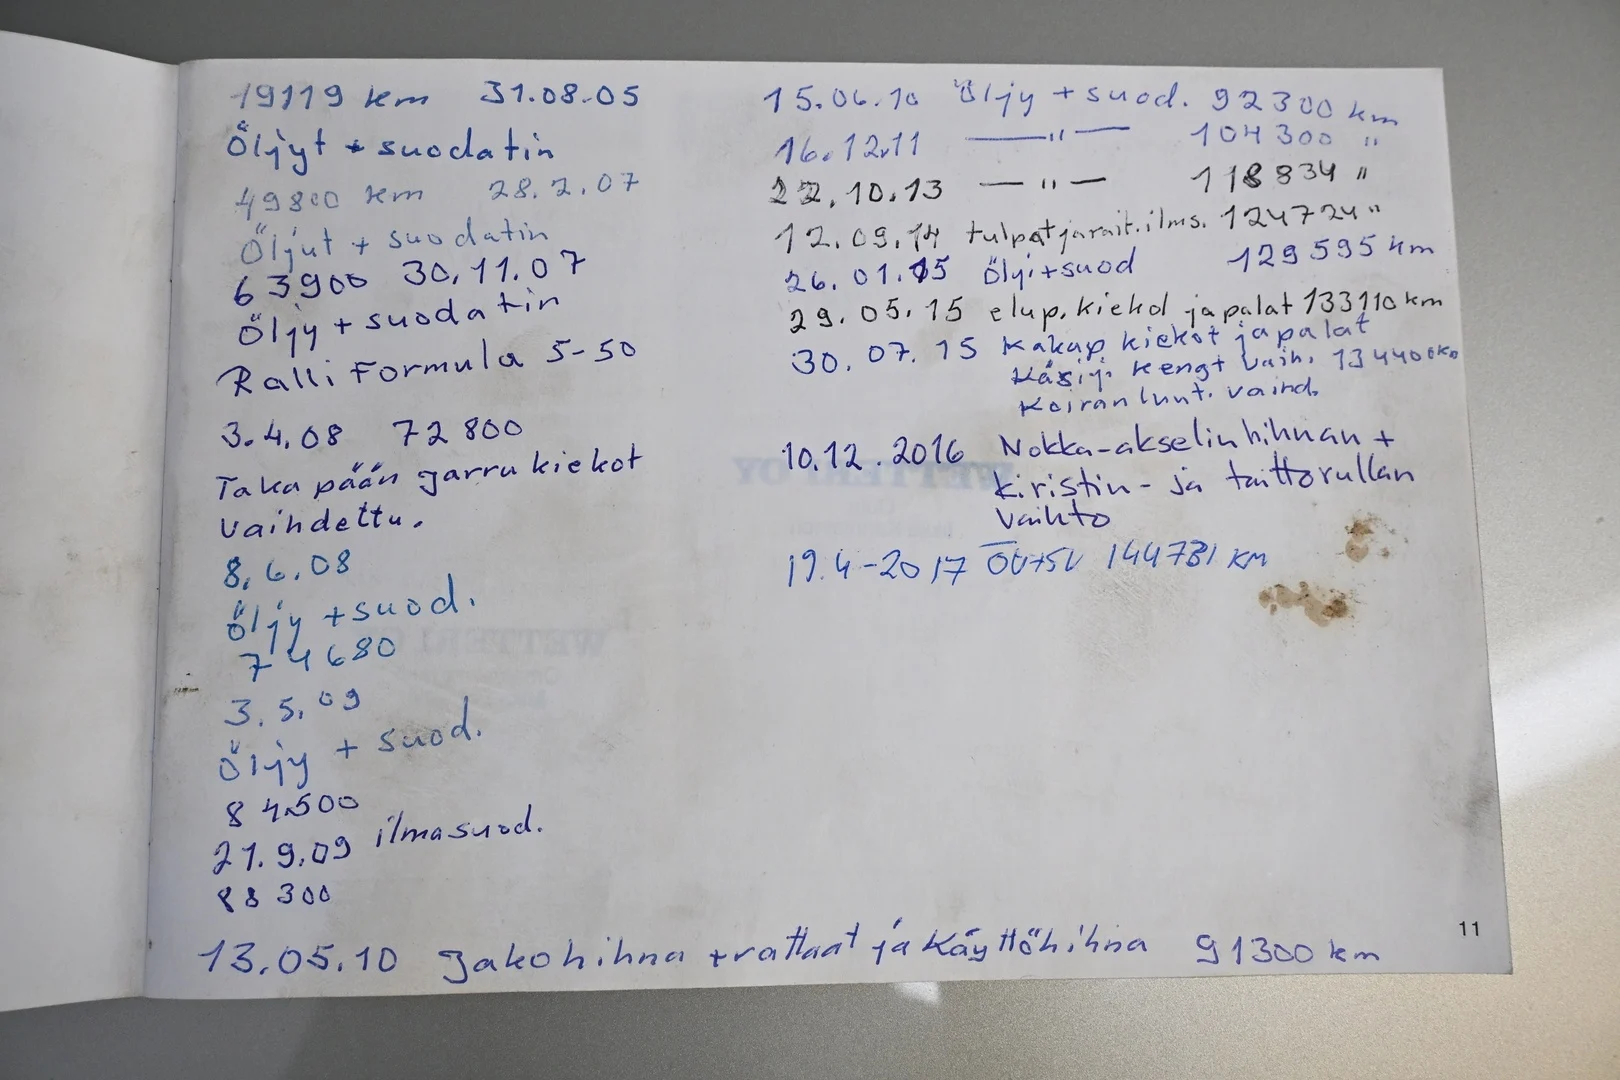 19119 km 31.08.05
Öljyt + suodatin
49800 km 28.2.07
Öljyt + suodatin
63900 30.11.07
Öljy + suodatin
Ralli Formula 5-50
3.4.08 72800
Takapään jarrukiekot
vaihdettu.
8.6.08
Öljy + suod.
74680
3.5.09
Öljy + suod.
84500
21.9.09 ilmasuod.
88300
13.05.10 Jakohihna + rattaat ja Käyttöhihna 91300 km
15.06.10 Öljy + suod. 92300 km
16.12.11 —"— 104300 "
22.10.13 —"— 118834 "
12.09.14 tulpat ja rait.ilms. 124724 "
26.01.15 Öljy+suod 129595 km
29.05.15 etup. kiekot ja palat 133110 km
30.07.15 Takap kiekot ja palat
Käsij. kengt vaih. 134400
Koiranluut. vaihd.
10.12.2016 Nokka-akselin hihnan +
kiristin- ja taittorullan
vaihto
19.4-2017 144781 KM
11